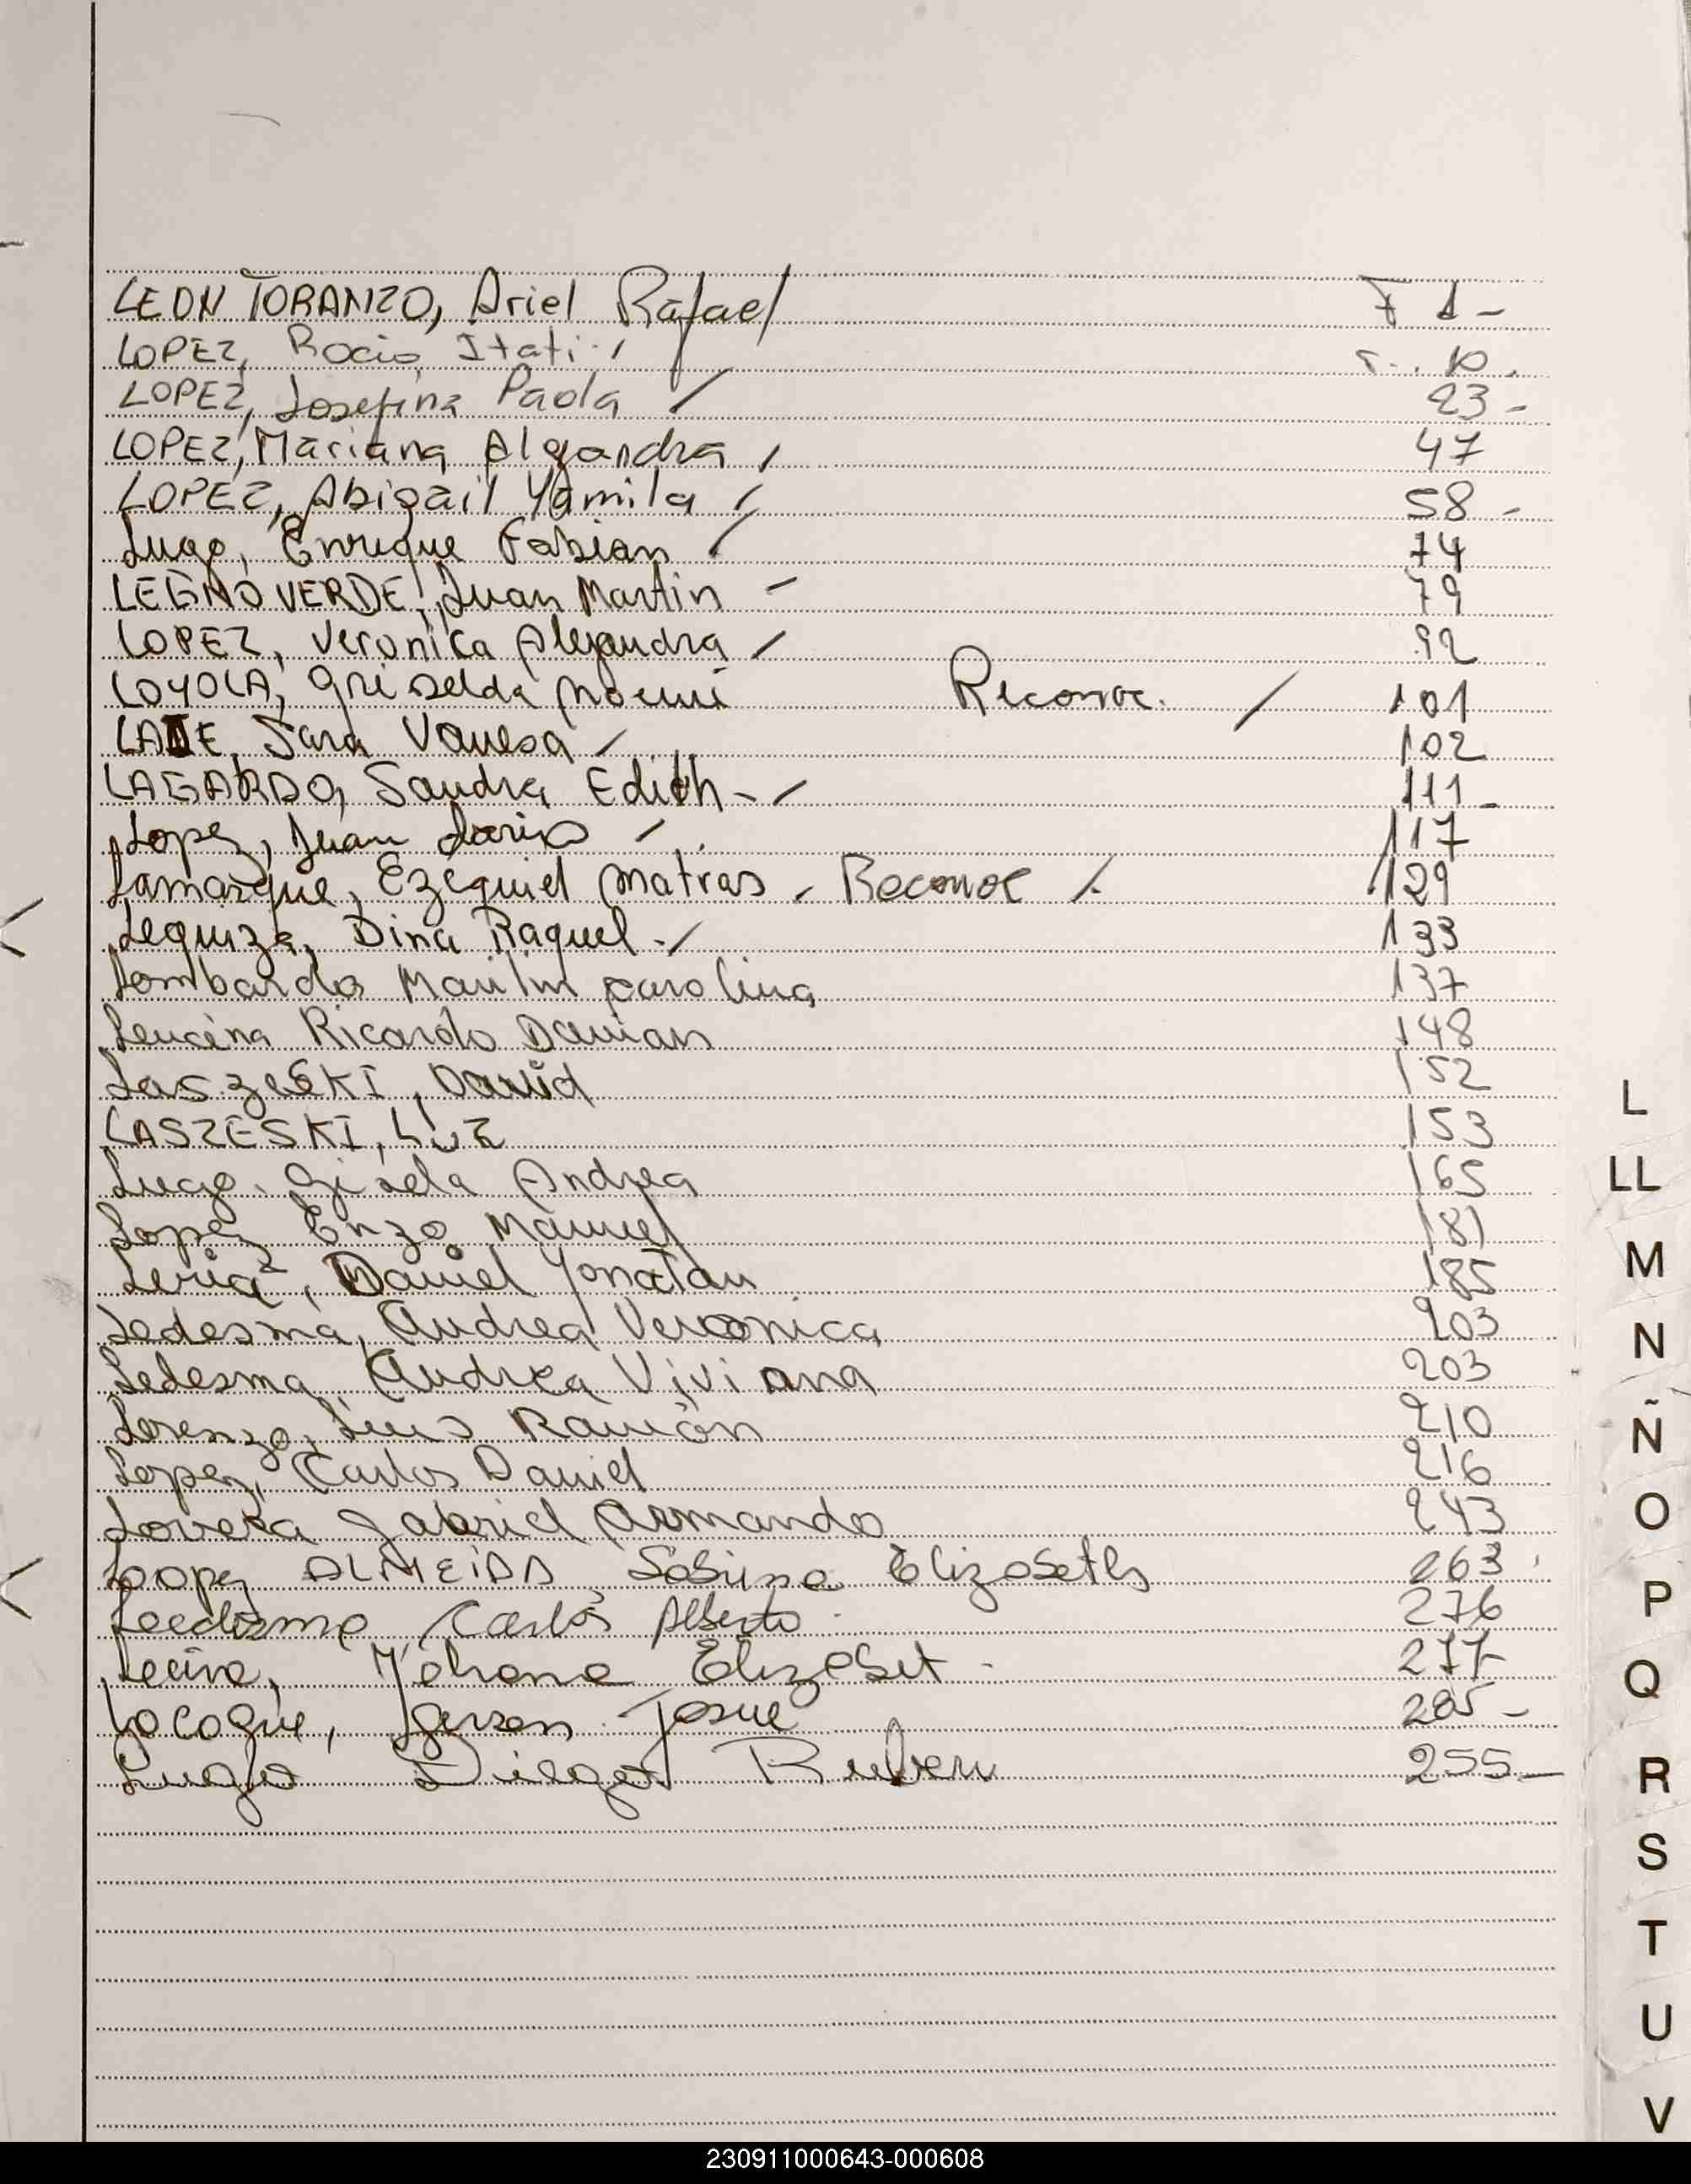 LEON TORANZO, Ariel Rafael F 1-
LOPEZ, Rocio Itati 10
LOPEZ, Josefina Paola 23-
LOPEZ, Mariana Alejandra 47
LOPEZ, Abigail Yamila 58-
Lugo, Enrique Fabian 74
LEGNOVERDE, Juan Martin 79
LOPEZ, Veronica Alejandra 92
LOYOLA, Griselda Noemi Reconoc. 101
Sara Vanesa 102
LAGARDO, Sandra Edith 111-
Lopez, Juan Dario 117
Lamarque, Ezequiel Matias Reconoc 129
Leguiza, Dina Raquel 133
Lombardo Mailin Carolina 137
Lencina Ricardo Damian 148
LaszeSKI, David 152
LASZESKI, Luz 153
Lugo, Gisela Andrea 165
Lopez Enzo Manuel 181
Leria, Daniel Yonatan 185
Ledesma, Andrea Veronica 203
Ledesma, Andrea Viviana 203
Lorenzo, Luis Ramón 210
Lopez, Carlos Daniel 216
Lovera Gabriel Armando 243
Loopez ALMEIDA, Sabrina Elizabeth 263
Leedesma Carlos Alberto 276
Yohana Elizabet 277
Locoque, Gerson Josue 285-
Lugo Diego Ruben 255-
L
LL
M
N
Ñ
O
P
Q
R
S
T
U
V
230911000643-000608